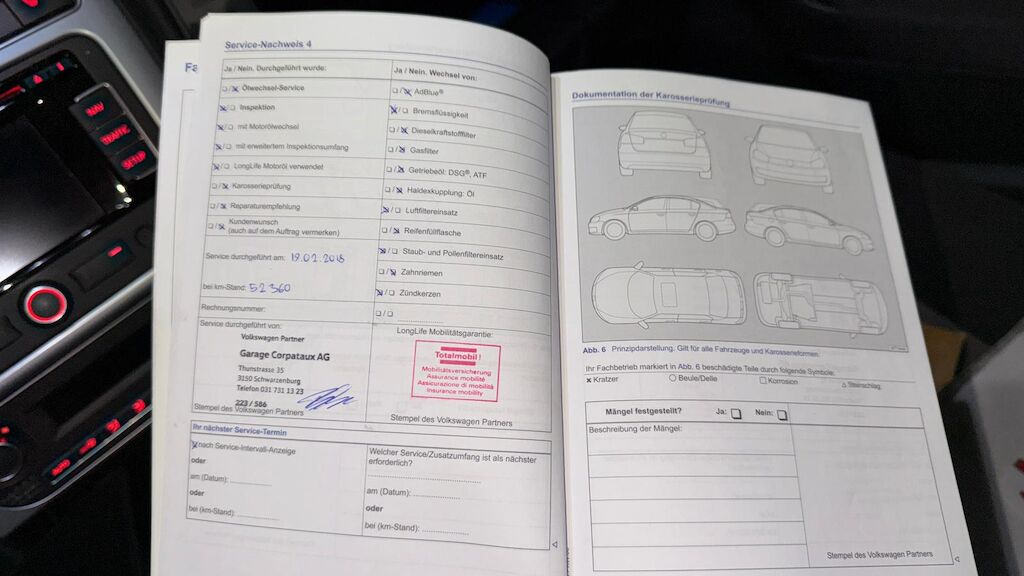 NAV
TRAFFIC
SETUP
AUTO
Fa
Service-Nachweis 4
Ja / Nein. Durchgeführt wurde:
Ölwechsel-Service
Inspektion
mit Motorölwechsel
mit erweitertem Inspektionsumfang
LongLife Motoröl verwendet
Karosserieprüfung
Reparaturempfehlung
Kundenwunsch
(auch auf dem Auftrag vermerken)
Service durchgeführt am: 19.02.2018
bei km-Stand: 52360
Rechnungsnummer:
Service durchgeführt von:
Volkswagen Partner
Garage Corpataux AG
Thunstrasse 35
3150 Schwarzenburg
Telefon 031 731 13 23
223 / 586
Stempel des Volkswagen Partners
Ja / Nein. Wechsel von:
AdBlue®
Bremsflüssigkeit
Dieselkraftstofffilter
Gasfilter
Getriebeöl: DSG®, ATF
Haldexkupplung: Öl
Luftfiltereinsatz
Reifenfüllflasche
Staub- und Pollenfiltereinsatz
Zahnriemen
Zündkerzen
LongLife Mobilitätsgarantie:
Totalmobil!
Mobilitätsversicherung
Assurance mobilité
Assicurazione di mobilità
Insurance mobility
Stempel des Volkswagen Partners
Ihr nächster Service-Termin
nach Service-Intervall-Anzeige
oder
am (Datum):
oder
bei (km-Stand):
Welcher Service/Zusatzumfang ist als nächster
erforderlich?
am (Datum):
oder
bei (km-Stand):
Dokumentation der Karosserieprüfung
Abb. 6 Prinzipdarstellung. Gilt für alle Fahrzeuge und Karosserieformen.
Ihr Fachbetrieb markiert in Abb. 6 beschädigte Teile durch folgende Symbole:
x Kratzer
Beule/Delle
Korrosion
Steinschlag
Mängel festgestellt? Ja: Nein:
Beschreibung der Mängel:
Stempel des Volkswagen Partners